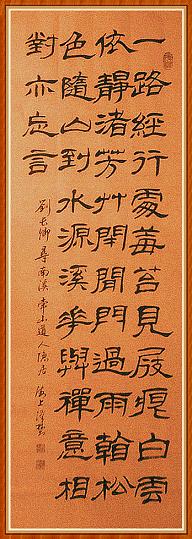 一路經行處莓苔見屐痕白雲
依靜渚芳艸閉閒門過雨看松
色隨山到水源溪花與禪意相
對亦忘言
劉長卿尋南溪常山道人隱居 海上